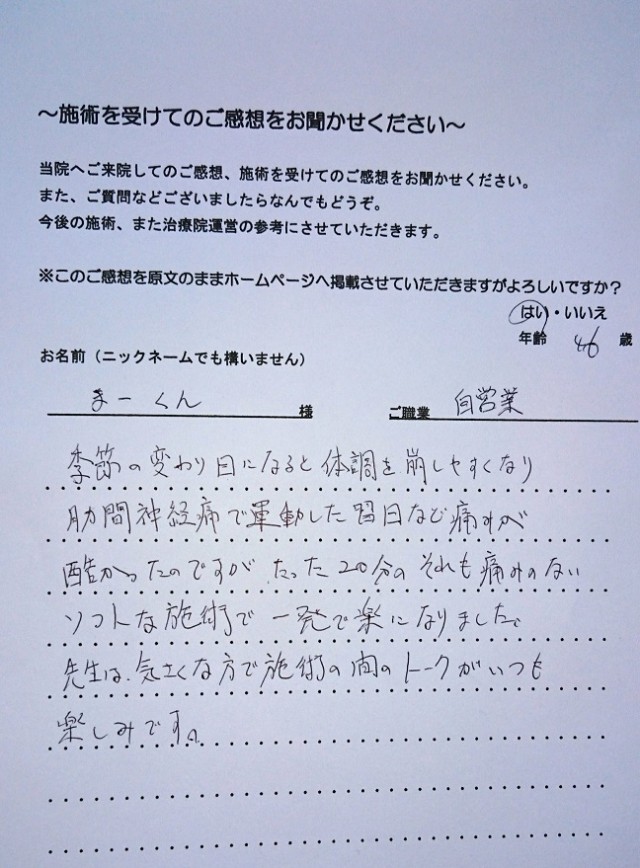 ～施術を受けてのご感想をお聞かせください～
当院へご来院してのご感想、施術を受けてのご感想をお聞かせください。
また、ご質問などございましたらなんでもどうぞ。
今後の施術、また治療院運営の参考にさせていただきます。
※このご感想を原文のままホームページへ掲載させていただきますがよろしいですか？
はい・いいえ
年齢 46 歳
お名前（ニックネームでも構いません）
まーくん 様 ご職業 自営業
季節の変わり目になると体調を崩しやすくなり
肋間神経痛で運動した翌日など痛みが
酷かったのですがたった20分のそれも痛みのない
ソフトな施術で一発で楽になりました。
先生は、気さくな方で施術の間のトークがいつも
楽しみです。